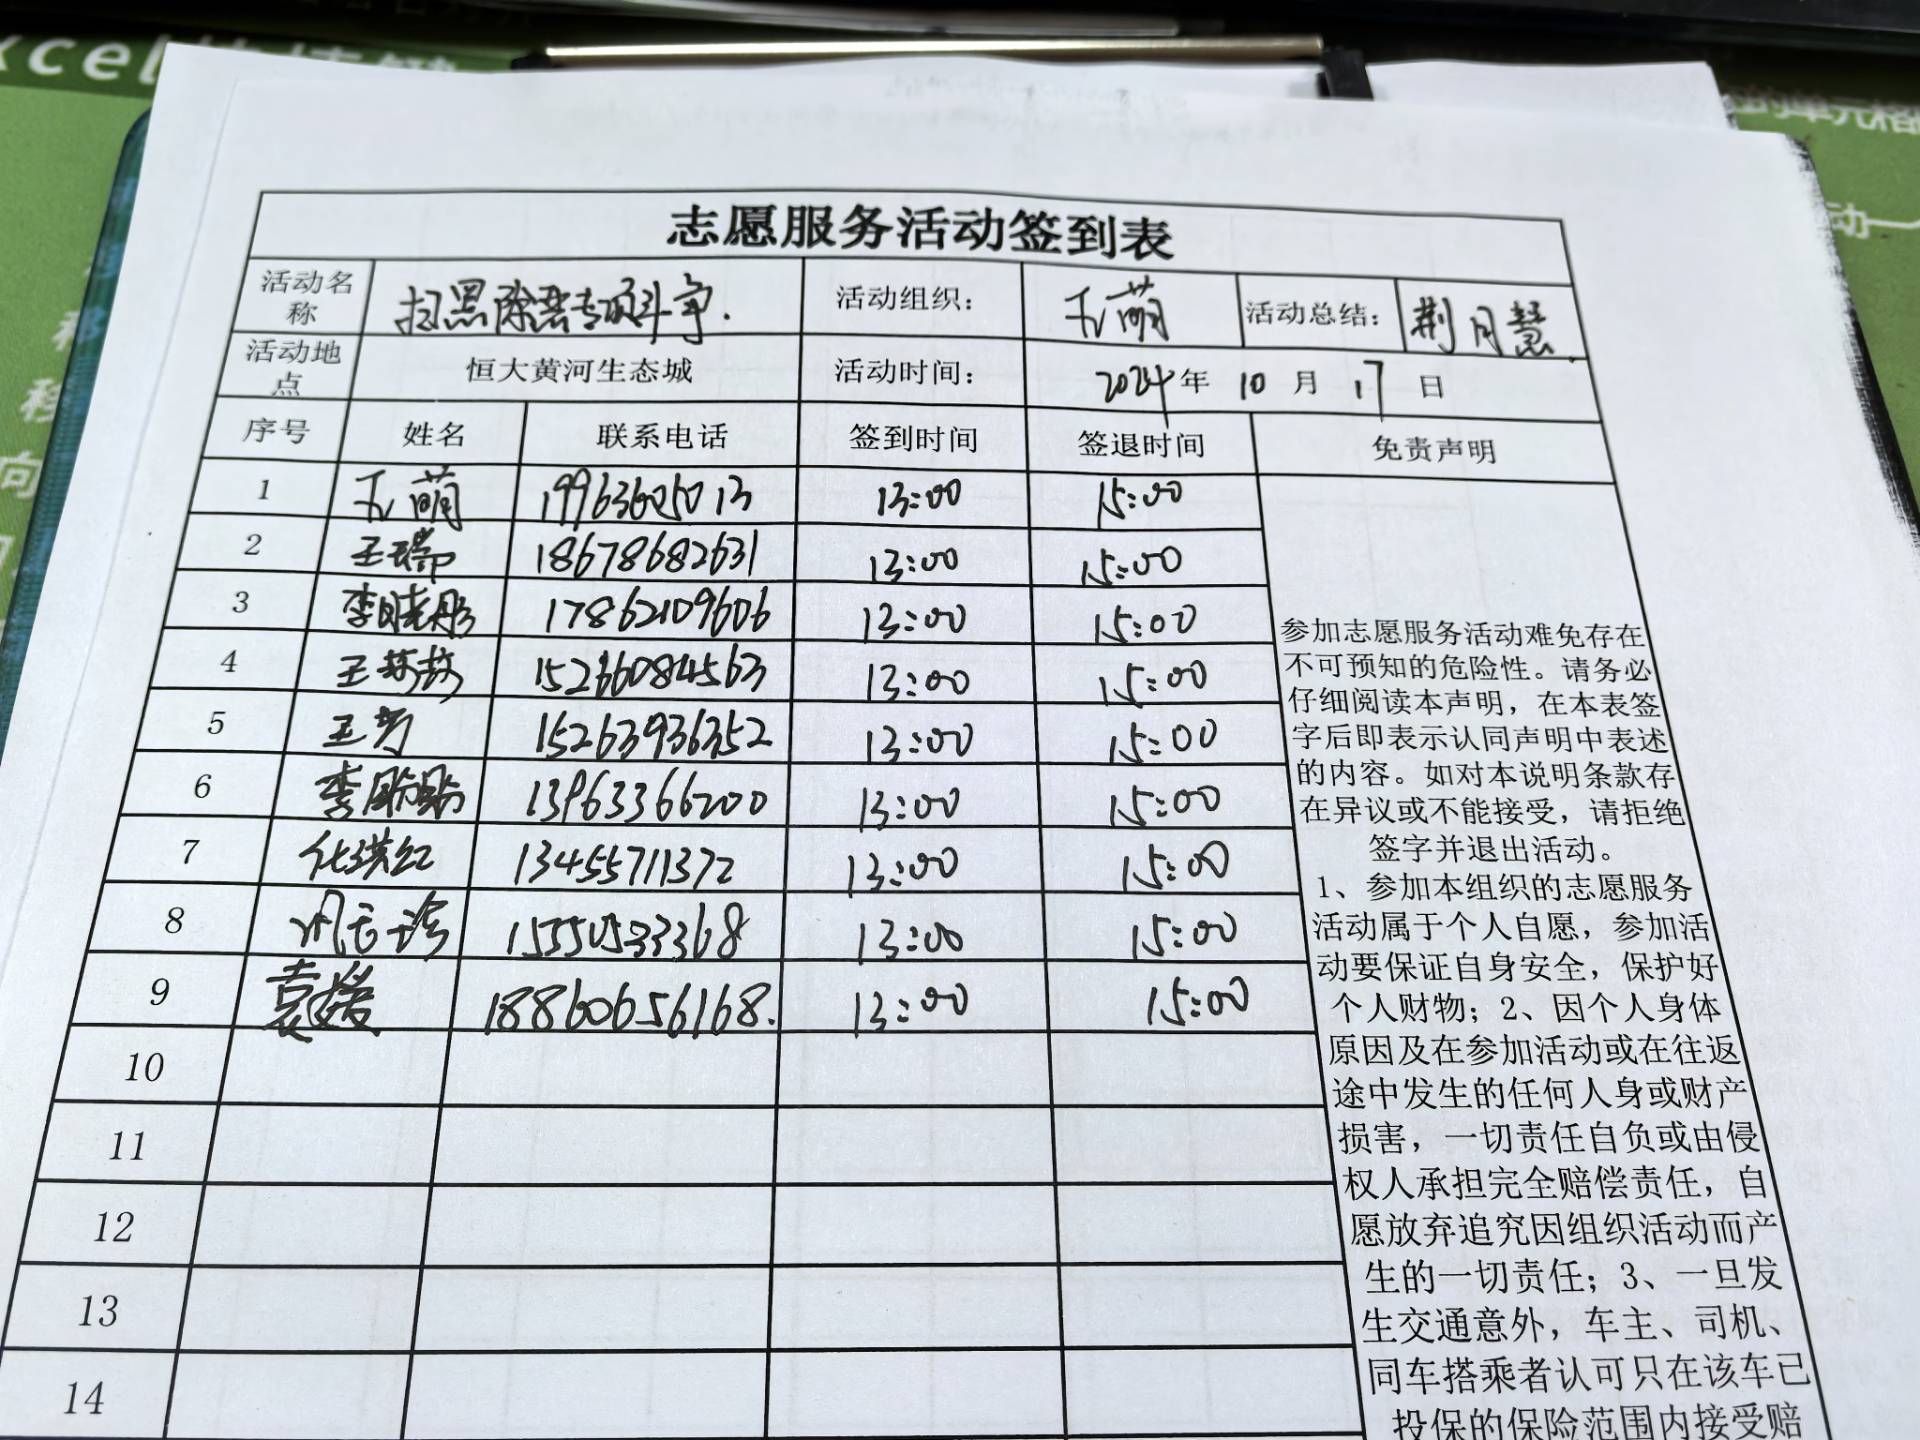 xcel
志愿服务活动签到表
活动名称 扫黑除恶专项斗争. 活动组织： 王萌 活动总结： 荆月慧.
活动地点 恒大黄河生态城 活动时间： 2024年 10月 17日
序号 姓名 联系电话 签到时间 签退时间 免责声明
1 王萌 19963605013 13:00 15:00
2 王瑞 18678682631 13:00 15:00
3 李晓彤 17862109606 13:00 15:00
4 王 15266084563 13:00 15:00
5 王芳 15263936352 13:00 15:00
6 李盼盼 13963366200 13:00 15:00
7 13455711372 13:00 15:00
8 15550533368 13:00 15:00
9 袁媛 18860656168. 13:00 15:00
10
11
12
13
14
参加志愿服务活动难免存在
不可预知的危险性。请务必
仔细阅读本声明，在本表签
字后即表示认同声明中表述
的内容。如对本说明条款存
在异议或不能接受，请拒绝
签字并退出活动。
1、参加本组织的志愿服务
活动属于个人自愿，参加活
动要保证自身安全，保护好
个人财物；2、因个人身体
原因及在参加活动或在往返
途中发生的任何人身或财产
损害，一切责任自负或由侵
权人承担完全赔偿责任，自
愿放弃追究因组织活动而产
生的一切责任；3、一旦发
生交通意外，车主、司机、
同车搭乘者认可只在该车已
投保的保险范围内接受赔